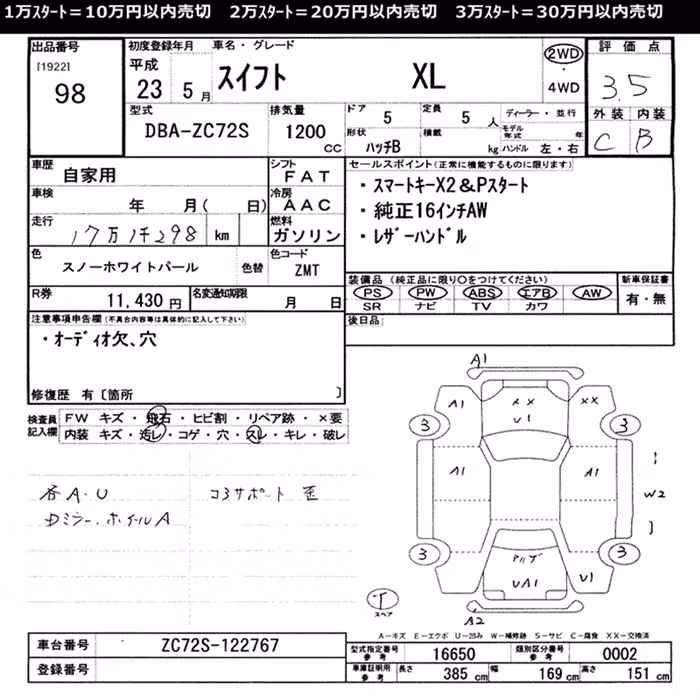 1万ｽﾀｰﾄ＝10万円以内売切　2万ｽﾀｰﾄ＝20万円以内売切　3万ｽﾀｰﾄ＝30万円以内売切
出品番号 初度登録年月 車名・グレード 評価点
[1922] 平成 スイフト XL 2WD
98 23 5月 ・ 4WD 3.5
型式 排気量 ドア 5 定員 5人 ディーラー・並行 外装 内装
DBA-ZC72S 1200 cc 形状 ハッチB 積載 kg モデル年式 年 ハンドル 左・右 C B
車歴 自家用 シフト FAT セールスポイント(正常に機能するものに限ります)
車検 年 月( 日) 冷房 AAC ・スマートキーX2＆Pスタート
走行 17万1千298 km 燃料 ガソリン ・純正16インチAW
・レザーハンドル
色 スノーホワイトパール 色替 色コード ZMT
装備品(純正品に限り○をつけてください) 新車保証書
R券 11,430円 名変通知期限 月 日 PS PW ABS エアB AW 有・無
SR ナビ TV カワ
注意事項申告欄(不具合内容等は具体的に記入して下さい) 後日品
・オーディオ欠、穴
修復歴 有〔箇所 〕
検査員記入欄 FW キズ・飛石・ヒビ割・リペア跡・×要
内装 キズ・汚レ・コゲ・穴・スレ・キレ・破レ
各A・U コアサポート 歪
ドミラー、ホイルA
A1
A1 XX XX
U1
3 3
A1 A1
W2
3 3
UA1 U1
スペア
A2
A－キズ E－エクボ U－凹み W－補修跡 S－サビ C－腐食 XX－交換済
車台番号 ZC72S-122767 型式指定番号 参考 16650 類別区分番号 参考 0002
登録番号 車庫証明用 参考 長さ 385 cm 幅 169 cm 高さ 151 cm